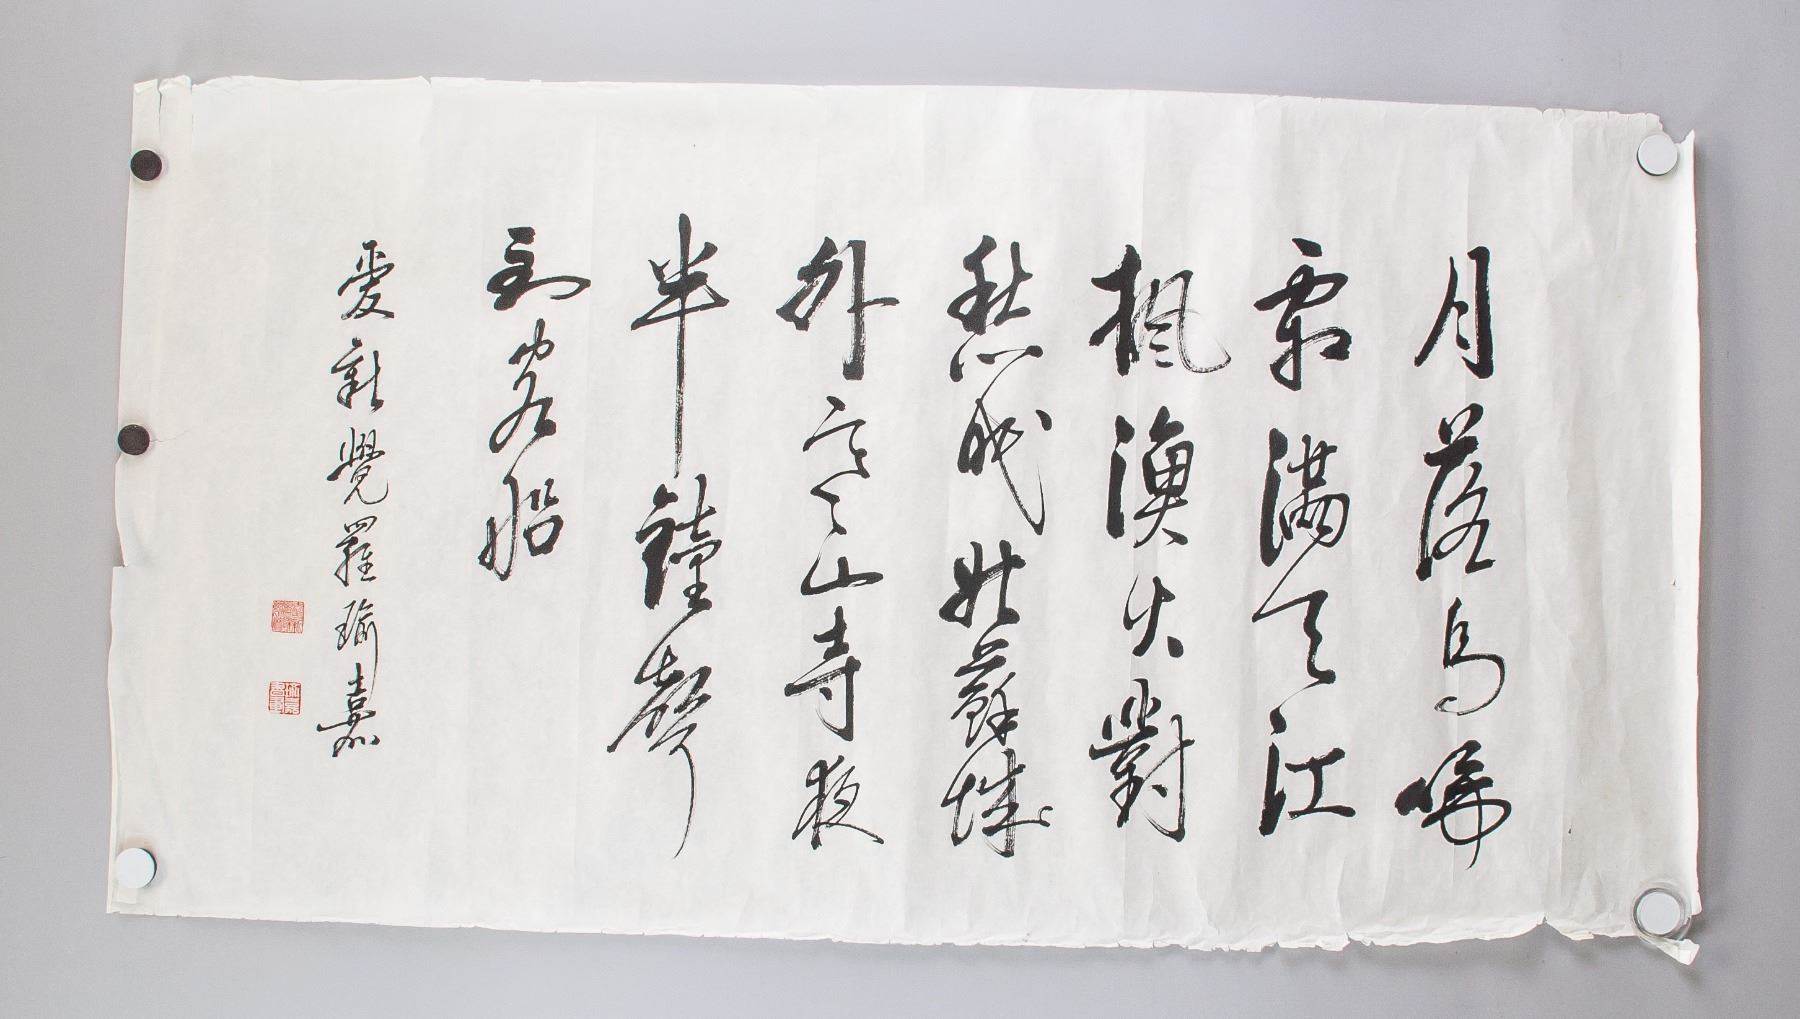 月落烏啼
霜滿天江
楓漁火對
愁眠姑蘇城
外寒山寺夜
半鐘聲
到客船
愛新覺羅瑜嘉